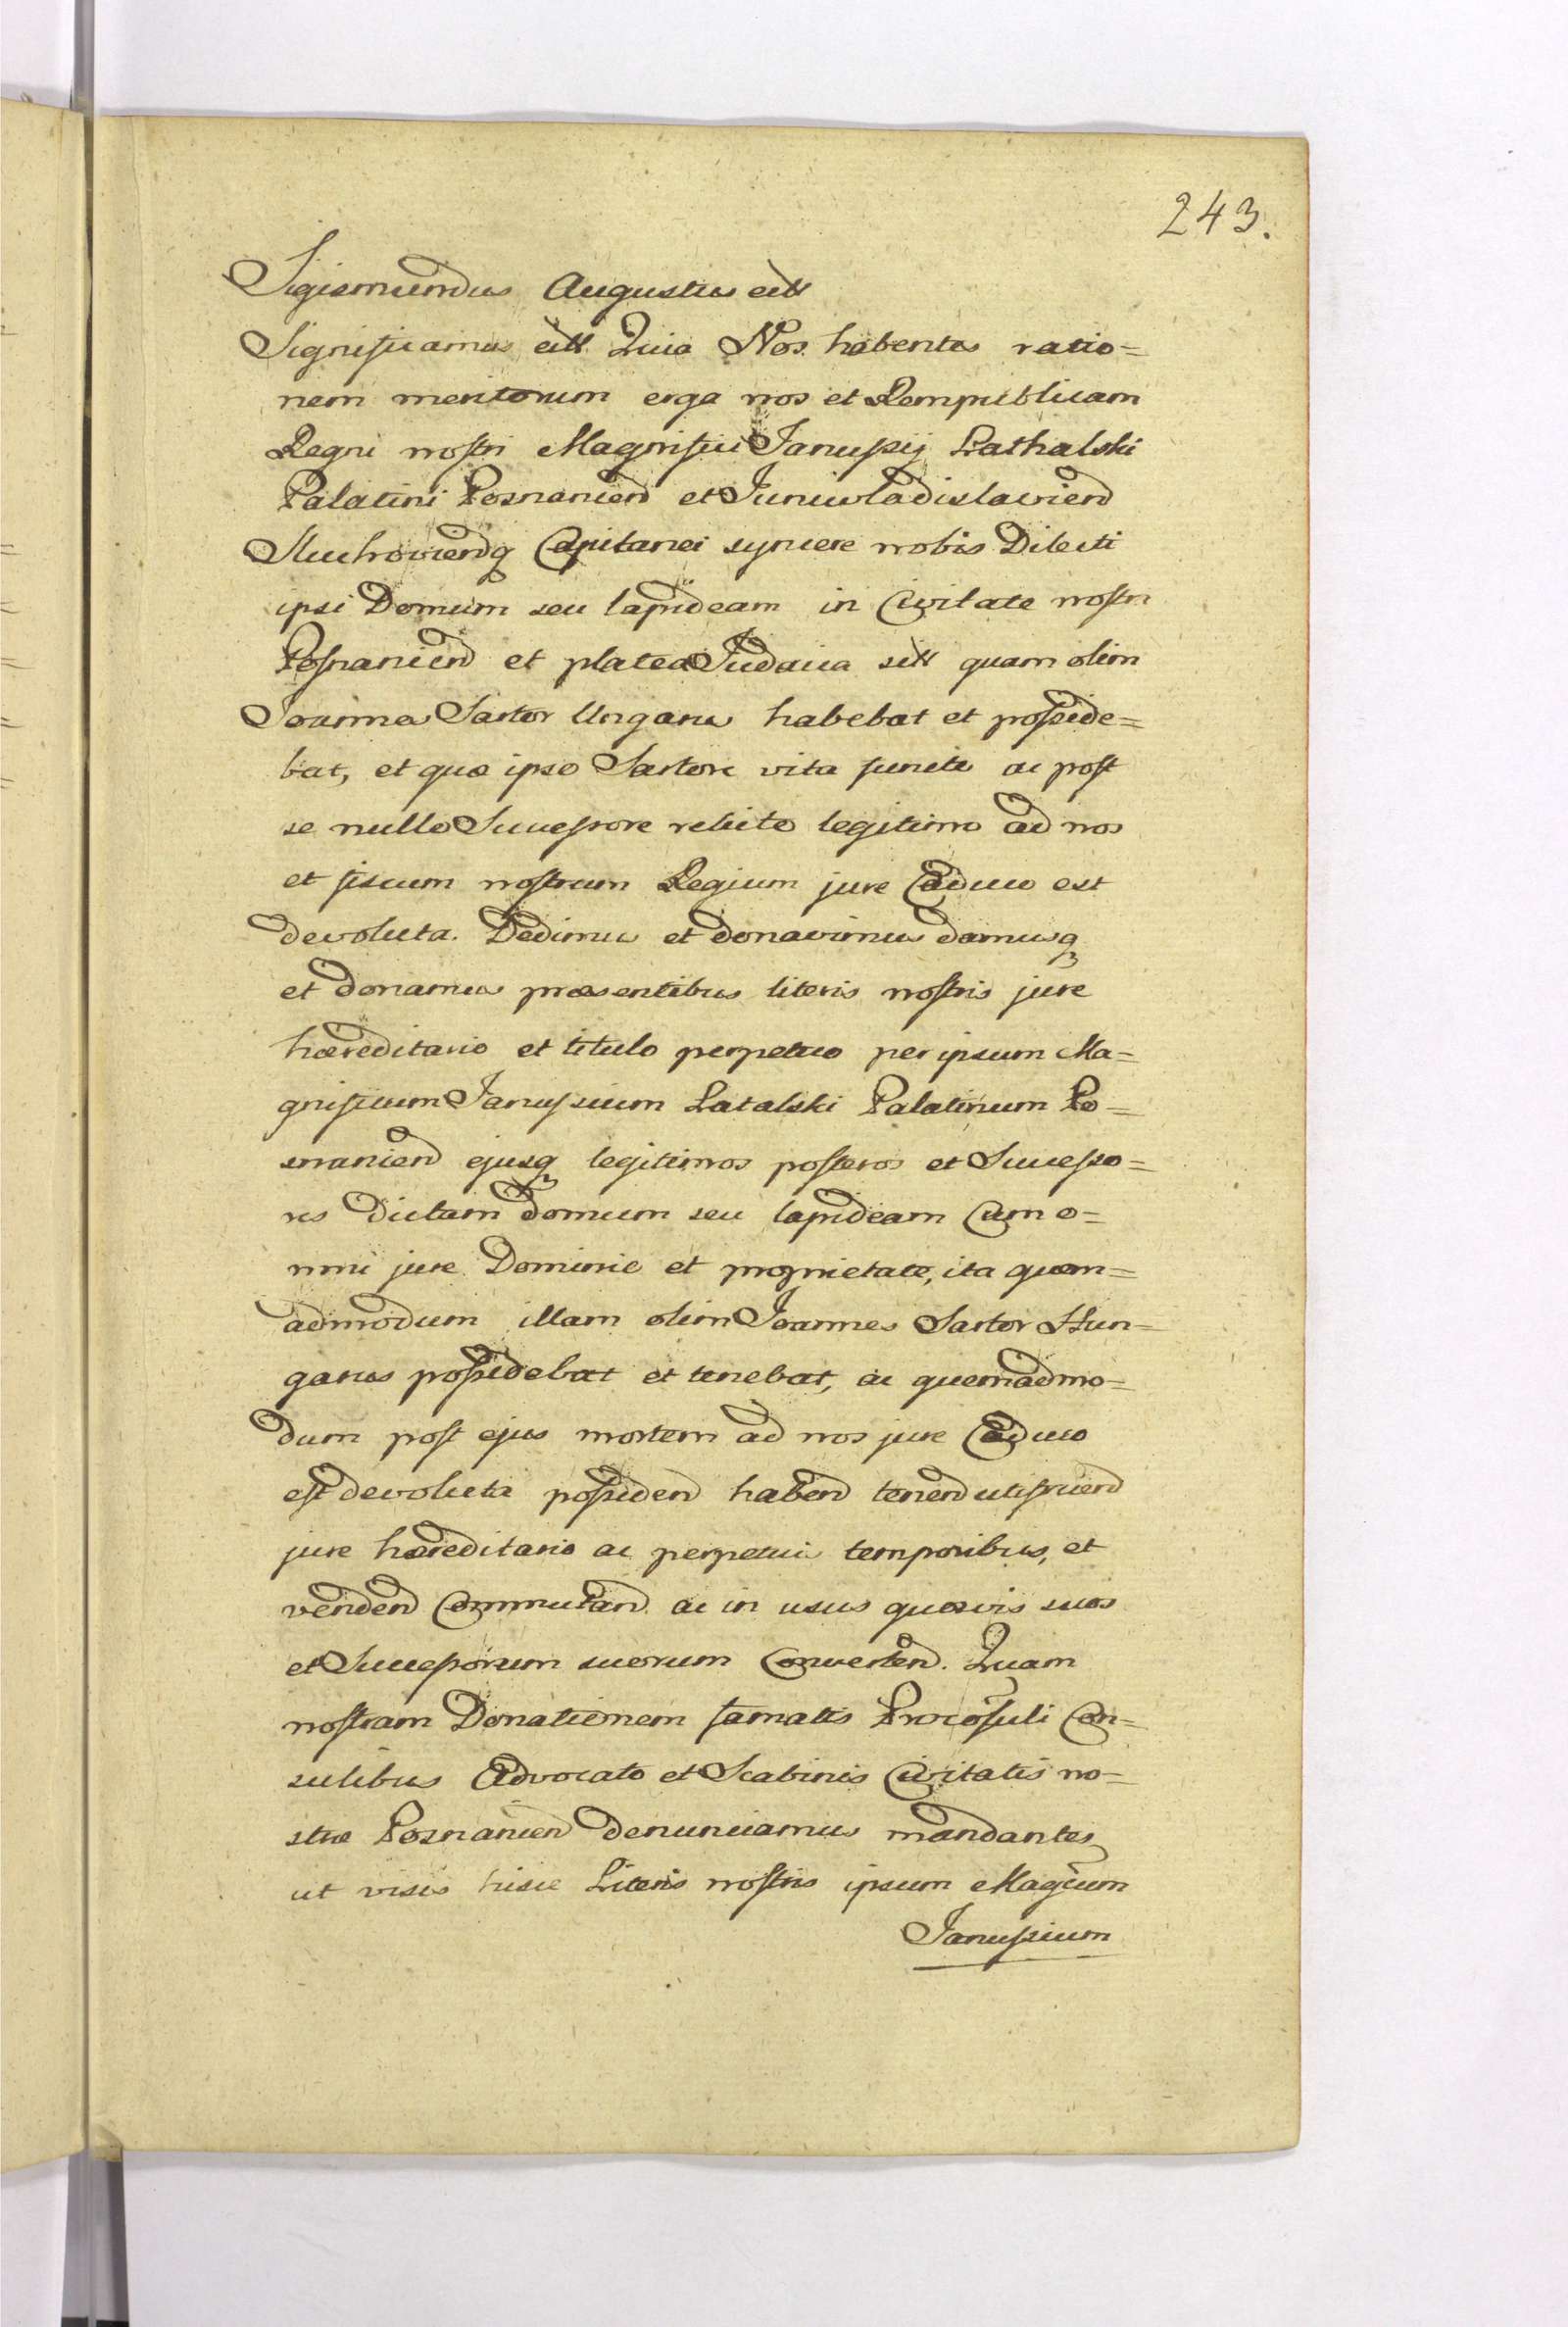 243.
Sigismundus Augustus ett
Significamus ett Quia Nos habentes ratio=
nem meritorum erga nos et Rempublicam
Regni nostri Magnifici Janussij Lathalski
Palatini Posnanien et Juniwladislavien
Sluchovienq Capitanei syncere nobis Dilecti
ipsi Domum seu lapideam in Civitate nostra
Posnanien et platea Judaica sitt quam olim
Joannes Sartor Ungarus habebat et posside=
bat, et quæ ipso Sartore vita functo ac post
se nullo Successore relicto legitimo ad nos
et fiscum nostrum Regium jure Caduco est
devoluta. Dedimus et donavimus damusq
et donamus præsentibus literis nostris jure
hæreditario et titulo perpetuo per ipsum Ma=
gnificum Janussium Latalski Palatinum Po=
snanien ejusq legitimos posteros et Successo=
res dictam domum seu lapideam Cum o=
mni jure Dominio et proprietate, ita quem=
admodum illam olim Joannes Sartor Hun=
garus possidebat et tenebat, ac quemadmo=
dum post ejus mortem ad nos jure Caduco
est devoluta possiden haben tenen utifruen
jure hæreditario ac perpetuis temporibus, et
venden Commutan ac in usus quosvis suos
et Successorum suorum Converten. Quam
nostram Donationem famatis Procõsuli Con=
sulibus Advocato et Scabinis Civitatis no=
stræ Posnanien denunciamus mandantes
ut visis hisce Literis nostris ipsum Magcum
Janussium